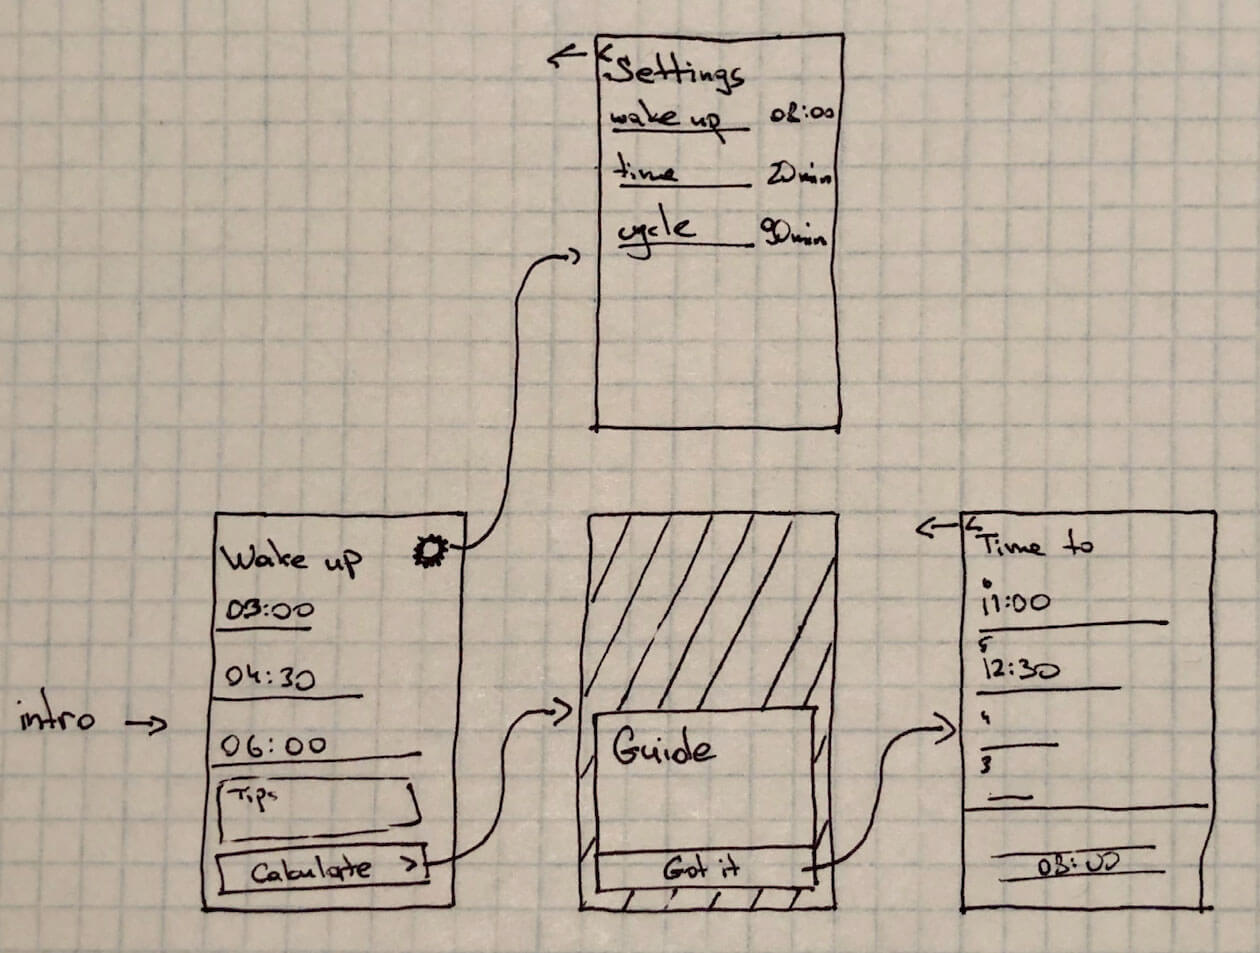 Settings
wake up 08:00
time 20min
cycle 90min
intro
Wake up
03:00
04:30
06:00
Tips
Calculate >
Guide
Got it
Time to
11:00
5
12:30
4
3
08:00